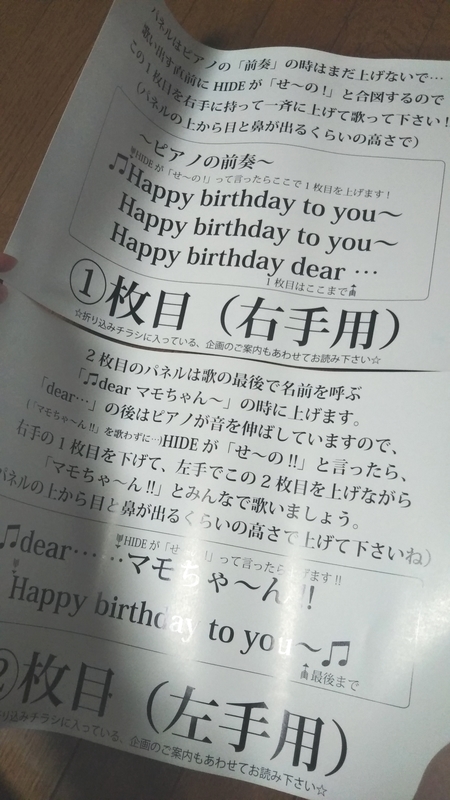 パネルはピアノの「前奏」の時はまだ上げないで…
歌い出す直前にHIDEが「せ〜の!」と合図するので
この1枚目を右手に持って一斉に上げて歌って下さい!
(パネルの上から目と鼻が出るくらいの高さで)
〜ピアノの前奏〜
HIDEが「せ〜の!」って言ったらここで1枚目を上げます!
♫Happy birthday to you〜
Happy birthday to you〜
Happy birthday dear …
1枚目はここまで
①枚目(右手用)
☆折り込みチラシに入っている、企画のご案内もあわせてお読み下さい☆
2枚目のパネルは歌の最後で名前を呼ぶ
「♫dear マモちゃん〜」の時に上げます。
「dear…」の後はピアノが音を伸ばしていますので、
(「マモちゃ〜ん!!」を歌わずに…)HIDEが「せ〜の!!」と言ったら、
右手の1枚目を下げて、左手でこの2枚目を上げながら
「マモちゃ〜ん!!」とみんなで歌いましょう。
パネルの上から目と鼻が出るくらいの高さで上げて下さいね)
HIDEが「せ〜の!」って言ったら上げます!!
♫dear……マモちゃ〜ん!!
Happy birthday to you〜♫
最後まで
②枚目(左手用)
折り込みチラシに入っている、企画のご案内もあわせてお読み下さい☆